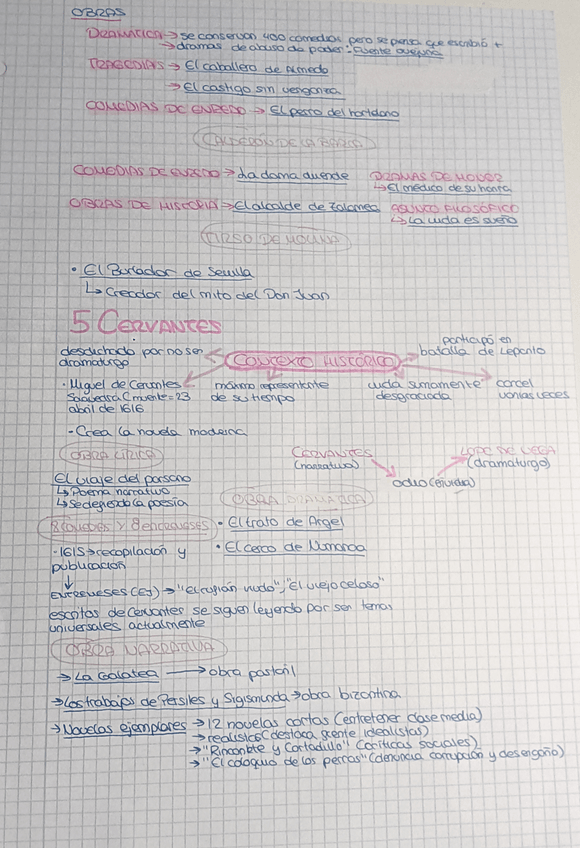 OBRAS
DRAMÁTICA → se conservan 400 comedias pero se piensa que escribió +
→ dramas de abuso de poder: Fuente ovejuna
TRAGEDIAS → El caballero de Olmedo
→ El castigo sin venganza
COMEDIAS DE ENREDO → El perro del hortelano
CALDERÓN DE LA BARCA
COMEDIAS DE ENREDO → La dama duende
DRAMAS DE HONOR
↳ El médico de su honra
OBRAS DE HISTORIA → El alcalde de Zalamea
ASUNTO FILOSÓFICO
↳ La vida es sueño
TIRSO DE MOLINA
• El Burlador de Sevilla
↳ Creador del mito del Don Juan
5 CERVANTES
desdichado por no ser dramaturgo
CONTEXTO HISTÓRICO
participó en
batalla de Lepanto
• Miguel de Cervantes
Saavedra (muerte = 23
abril de 1616
máximo representante
de su tiempo
vida sumamente
desgraciada
carcel
varias veces
- Crea la novela moderna
OBRA LÍRICA
CERVANTES
(narrativa)
LOPE DE VEGA
(dramaturgo)
odio (envidia)
El viaje del parnaso
↳ Poema narrativo
↳ Se degenda la poesía
OBRA DRAMÁTICA
8 comedias y 8 entremeses
• El trato de Argel
• El cerco de Numancia
· 1615 → recopilación y
publicación
↓
ENTREMESES (EJ) → "El rufián viudo", "El viejo celoso"
escritos de Cervantes se siguen leyendo por ser temas
universales actualmente
OBRA NARRATIVA
→ La Galatea → obra pastoril
→ Los trabajos de Persiles y Sigismunda → obra bizantina
→ Novelas ejemplares → 12 novelas cortas (entretener clase media)
→ realistas (destaca gente idealistas)
→ "Rinconete y Cortadillo" (críticas sociales)
→ "El coloquio de los perros" (denuncia corrupción y desengaño)